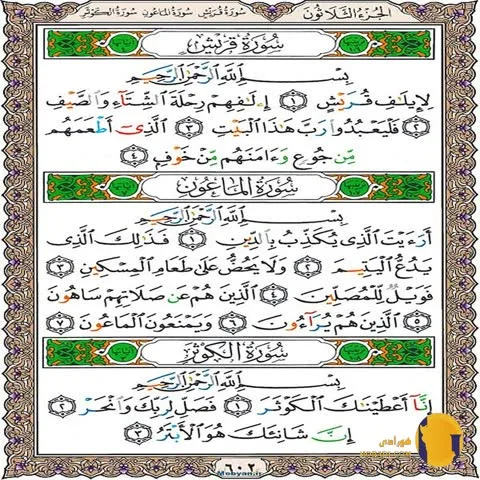 سُورَةُ قُرَيْشٍ سُورَةُ المَاعُونِ سُورَةُ الكَوْثَرِ الجُزْءُ الثَّلَاثُونَ
سُورَةُ قُرَيْشٍ
بِسْمِ ٱللَّهِ ٱلرَّحْمَٰنِ ٱلرَّحِيمِ
لِإِيلَٰفِ قُرَيْشٍ ١ إِۦلَٰفِهِمْ رِحْلَةَ ٱلشِّتَآءِ وَٱلصَّيْفِ
٢ فَلْيَعْبُدُوا۟ رَبَّ هَٰذَا ٱلْبَيْتِ ٣ ٱلَّذِىٓ أَطْعَمَهُم
مِّن جُوعٍ وَءَامَنَهُم مِّنْ خَوْفٍۭ ٤
سُورَةُ المَاعُونِ
بِسْمِ ٱللَّهِ ٱلرَّحْمَٰنِ ٱلرَّحِيمِ
أَرَءَيْتَ ٱلَّذِى يُكَذِّبُ بِٱلدِّينِ ١ فَذَٰلِكَ ٱلَّذِى
يَدُعُّ ٱلْيَتِيمَ ٢ وَلَا يَحُضُّ عَلَىٰ طَعَامِ ٱلْمِسْكِينِ ٣
فَوَيْلٌ لِّلْمُصَلِّينَ ٤ ٱلَّذِينَ هُمْ عَن صَلَاتِهِمْ سَاهُونَ
٥ ٱلَّذِينَ هُمْ يُرَآءُونَ ٦ وَيَمْنَعُونَ ٱلْمَاعُونَ ٧
سُورَةُ الكَوْثَرِ
بِسْمِ ٱللَّهِ ٱلرَّحْمَٰنِ ٱلرَّحِيمِ
إِنَّآ أَعْطَيْنَٰكَ ٱلْكَوْثَرَ ١ فَصَلِّ لِرَبِّكَ وَٱنْحَرْ ٢
إِنَّ شَانِئَكَ هُوَ ٱلْأَبْتَرُ ٣
٦٠٢
Mobyan.ir